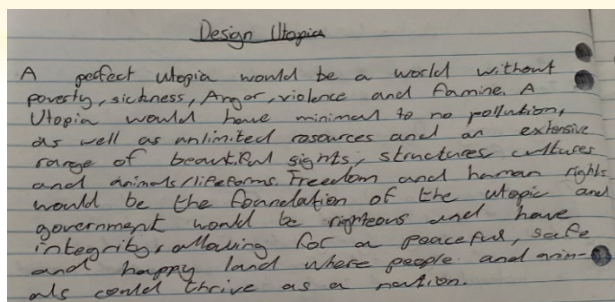 Design Utopia
A perfect utopia would be a world without
poverty, sickness, Anger, violence and famine. A
Utopia would have minimal to no pollution,
as well as unlimited resources and an extensive
range of beautiful sights, structures, cultures
and animals/lifeforms. Freedom and human rights
would be the foundation of the utopia and
government would be righteous and have
integrity, allowing for a peaceful, safe
and happy land where people and anim-
als could thrive as a nation.